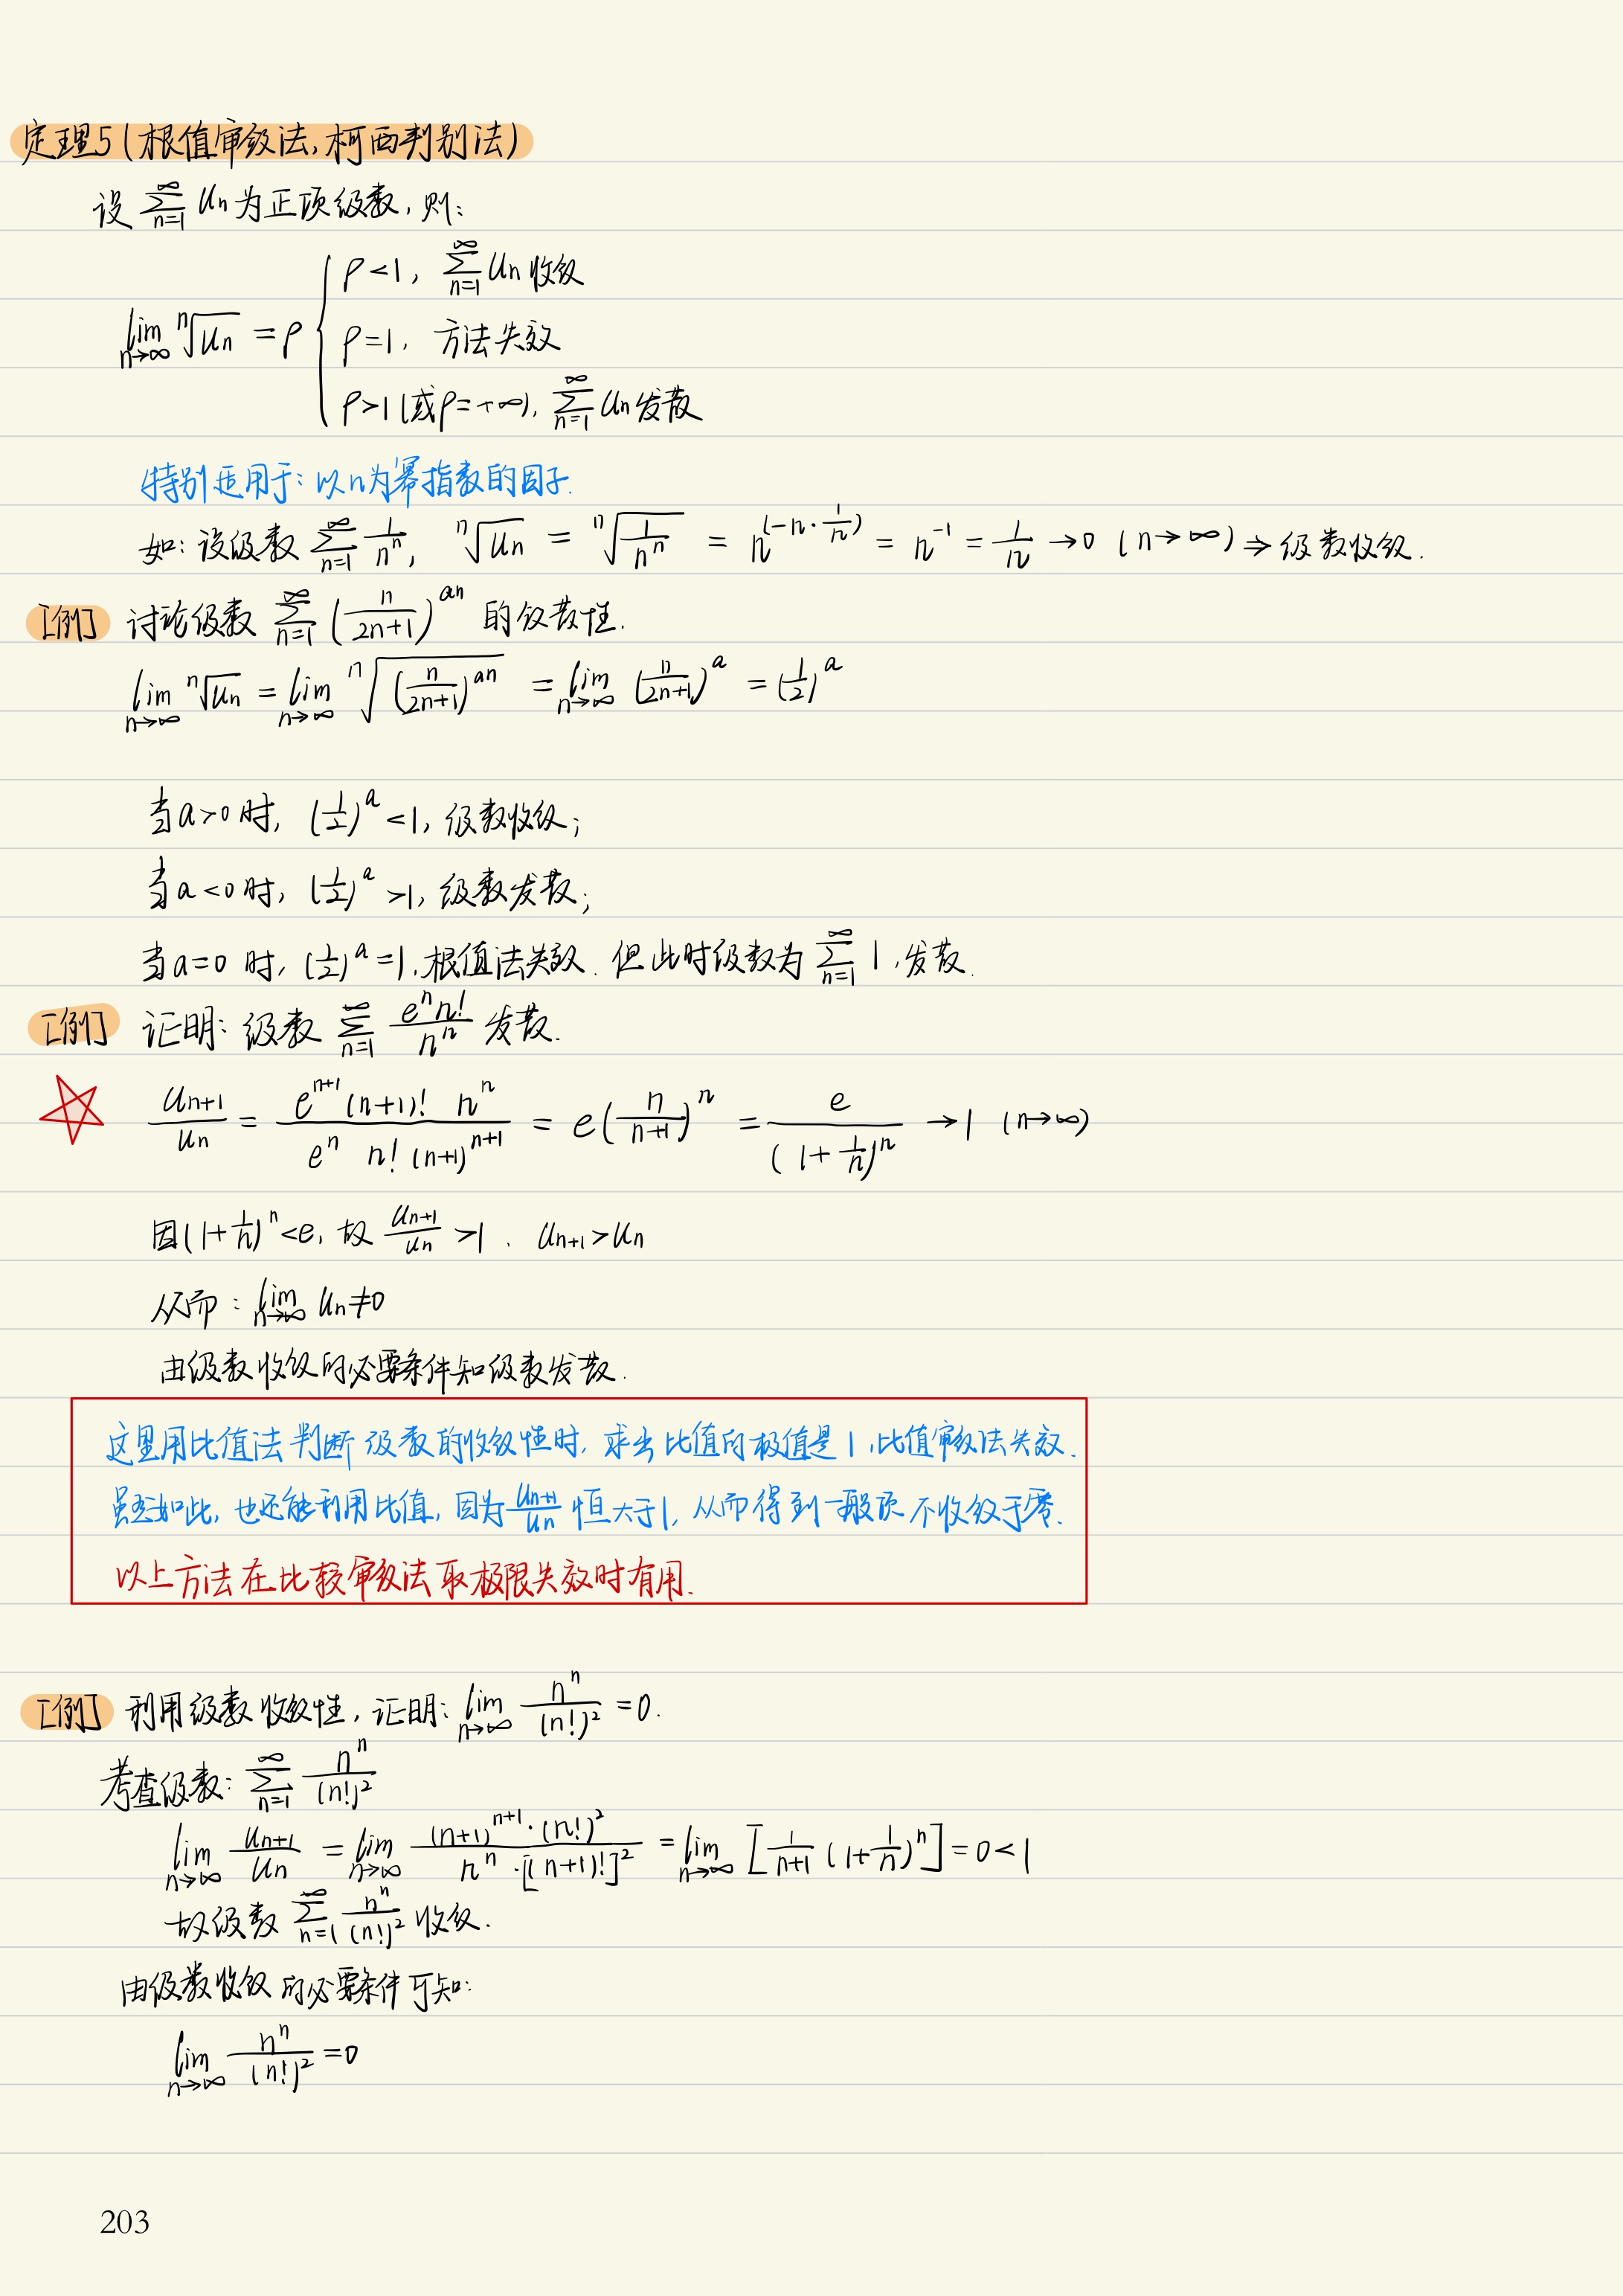 定理5(根值审敛法,柯西判别法)
设 $\sum_{n=1}^{\infty} u_n$ 为正项级数,则:
$\lim_{n\to\infty} \sqrt[n]{u_n} = \rho \begin{cases} \rho<1, \sum_{n=1}^{\infty} u_n 收敛 \\ \rho=1, 方法失效 \\ \rho>1(或\rho=+\infty), \sum_{n=1}^{\infty} u_n 发散 \end{cases}$
特别适用于:以n为幂指数的因子.
如:设级数 $\sum_{n=1}^{\infty} \frac{1}{n^n}$, $\sqrt[n]{u_n} = \sqrt[n]{\frac{1}{n^n}} = n^{(-n\cdot\frac{1}{n})} = n^{-1} = \frac{1}{n} \to 0 (n\to\infty) \Rightarrow$ 级数收敛.
[例] 讨论级数 $\sum_{n=1}^{\infty} (\frac{n}{2n+1})^{an}$ 的敛散性.
$\lim_{n\to\infty} \sqrt[n]{u_n} = \lim_{n\to\infty} \sqrt[n]{(\frac{n}{2n+1})^{an}} = \lim_{n\to\infty} (\frac{n}{2n+1})^a = (\frac{1}{2})^a$
当a>0时, $(\frac{1}{2})^a<1$, 级数收敛;
当a<0时, $(\frac{1}{2})^a>1$, 级数发散;
当a=0时, $(\frac{1}{2})^a=1$, 根值法失效. 但此时级数为 $\sum_{n=1}^{\infty} 1$, 发散.
[例] 证明:级数 $\sum_{n=1}^{\infty} \frac{e^n n!}{n^n}$ 发散.
$\frac{u_{n+1}}{u_n} = \frac{e^{n+1}(n+1)! \ n^n}{e^n \ n! \ (n+1)^{n+1}} = e(\frac{n}{n+1})^n = \frac{e}{(1+\frac{1}{n})^n} \to 1 \ (n\to\infty)$
因$(1+\frac{1}{n})^n<e$, 故 $\frac{u_{n+1}}{u_n}>1$. $u_{n+1}>u_n$
从而:$\lim_{n\to\infty} u_n \neq 0$
由级数收敛的必要条件知级数发散.
这里用比值法判断级数的收敛性时,求出比值的极值是1,比值审敛法失效.
虽然如此,也还能利用比值,因为$\frac{u_{n+1}}{u_n}$恒大于1,从而得到一般项不收敛于零.
以上方法在比较审敛法取极限失效时有用.
[例] 利用级数收敛性,证明:$\lim_{n\to\infty} \frac{n^n}{(n!)^2} = 0$.
考查级数:$\sum_{n=1}^{\infty} \frac{n^n}{(n!)^2}$
$\lim_{n\to\infty} \frac{u_{n+1}}{u_n} = \lim_{n\to\infty} \frac{(n+1)^{n+1}\cdot(n!)^2}{n^n\cdot[(n+1)!]^2} = \lim_{n\to\infty} [\frac{1}{n+1}(1+\frac{1}{n})^n] = 0<1$
故级数 $\sum_{n=1}^{\infty} \frac{n^n}{(n!)^2}$ 收敛.
由级数收敛的必要条件可知:
$\lim_{n\to\infty} \frac{n^n}{(n!)^2} = 0$
203